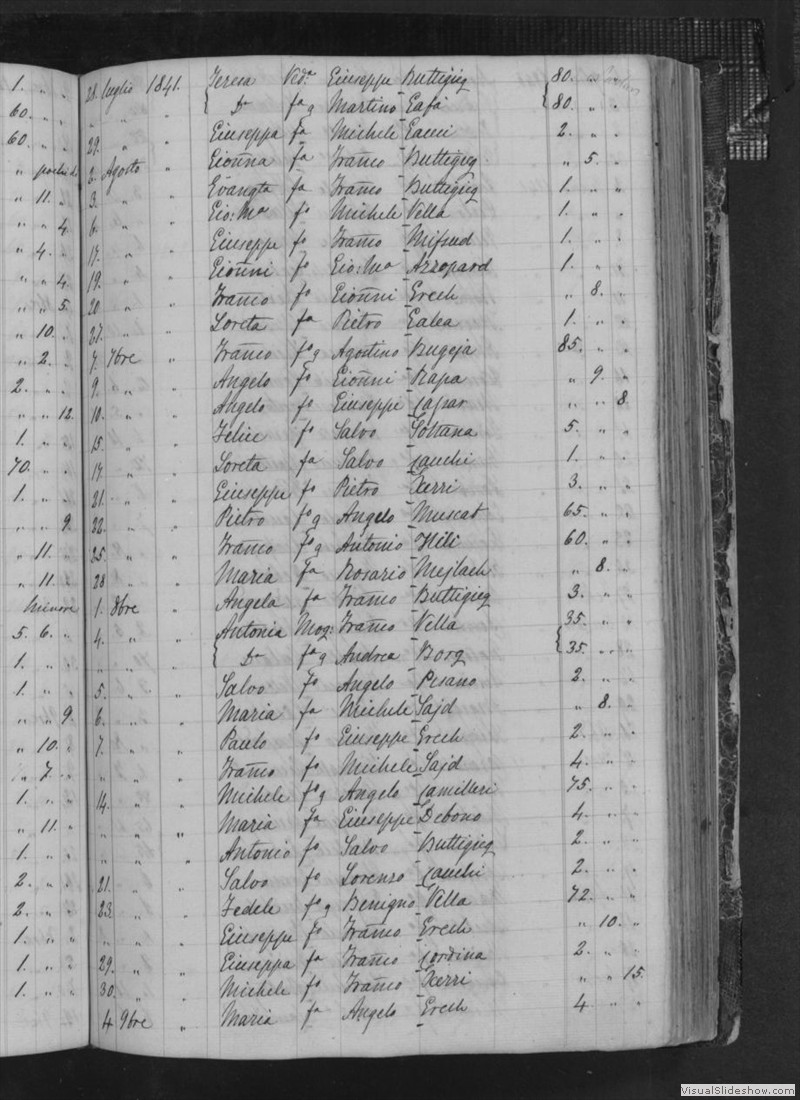 1. " " 28. luglio 1841. Teresa Ved.ª Giuseppe Buttigieg 80. " "
60. " " " " " { Dª fª g Martino Cafà { 80. " "
60. " " 29. " " Giuseppa fª Michele Cauci 2. " "
" pochi d. 2. Agosto " Gioñna fª Frañco Buttigieg " 5. "
" 11. " 3. " " Evangta fª Frañco Buttigieg 1. " "
" " 4. 6. " " Gio: Mª fº Michele Vella 1. " "
" 4. " 17. " " Giuseppe fº Frañco Mifsud 1. " "
" " 4. 19. " " Gioñni fº Gio: Mª Azzopard 1. " "
" " 5. 20. " " Frañco fº Gioñni Grech " 8. "
" 10. " 27. " " Loreta fª Pietro Galea 1. " "
" 2. " 7. 7bre " Frañco fº g Agostino Bugeja 85. " "
2. " " 9. " " Angelo fº Gioñni Rapa " 9. "
" " 12. 10. " " Angelo fº Giuseppe Caspar " " 8.
1. " " 15. " " Felice fº Salvo Sottana 5. " "
70. " " 17. " " Loreta fª Salvo Cauchi 1. " "
1. " " 21. " " Giuseppe fº Pietro Xerri 3. " "
" " 9. 22. " " Pietro fº g Angelo Muscat 65. " "
" 11. " 25. " " Frañco fº g Antonio Hili 60. " "
" 11. " 28. " " Maria fª Rosario Mejlach " 8. "
Minore 1. 8bre " Angela fª Frañco Buttigieg 3. " "
5. 6. " 4. " " Antonia Mog: Frañco Vella 35. " "
1. " " " " " { Dª fª g Andrea Borg { 35. " "
1. " " 5. " " Salvo fº Angelo Pisano 2. " "
" " 9. 6. " " Maria fª Michele Sajd " 8. "
" 10. " 7. " " Paulo fº Giuseppe Grech 2. " "
" 7. " " " " Frañco fº Michele Sajd 4. " "
1. " " 14. " " Michele fº g Angelo Camilleri 75. " "
" 11. " " " " Maria fª Giuseppe Debono 4. " "
1. " " " " " Antonio fº Salvo Buttigieg 2. " "
2. " " 21. " " Salvo fº Lorenzo Cauchi 2. " "
2. " " 23. " " Fedele fº g Benigno Vella 72. " "
1. " " " " " Giuseppe fº Frañco Grech " 10. "
1. " " 29. " " Giuseppa fª Frañco Cordina 2. " "
1. " " 30. " " Michele fº Frañco Xerri " " 15.
4 9bre " Maria fª Angelo Grech 4 " "
VisualSlideshow.com